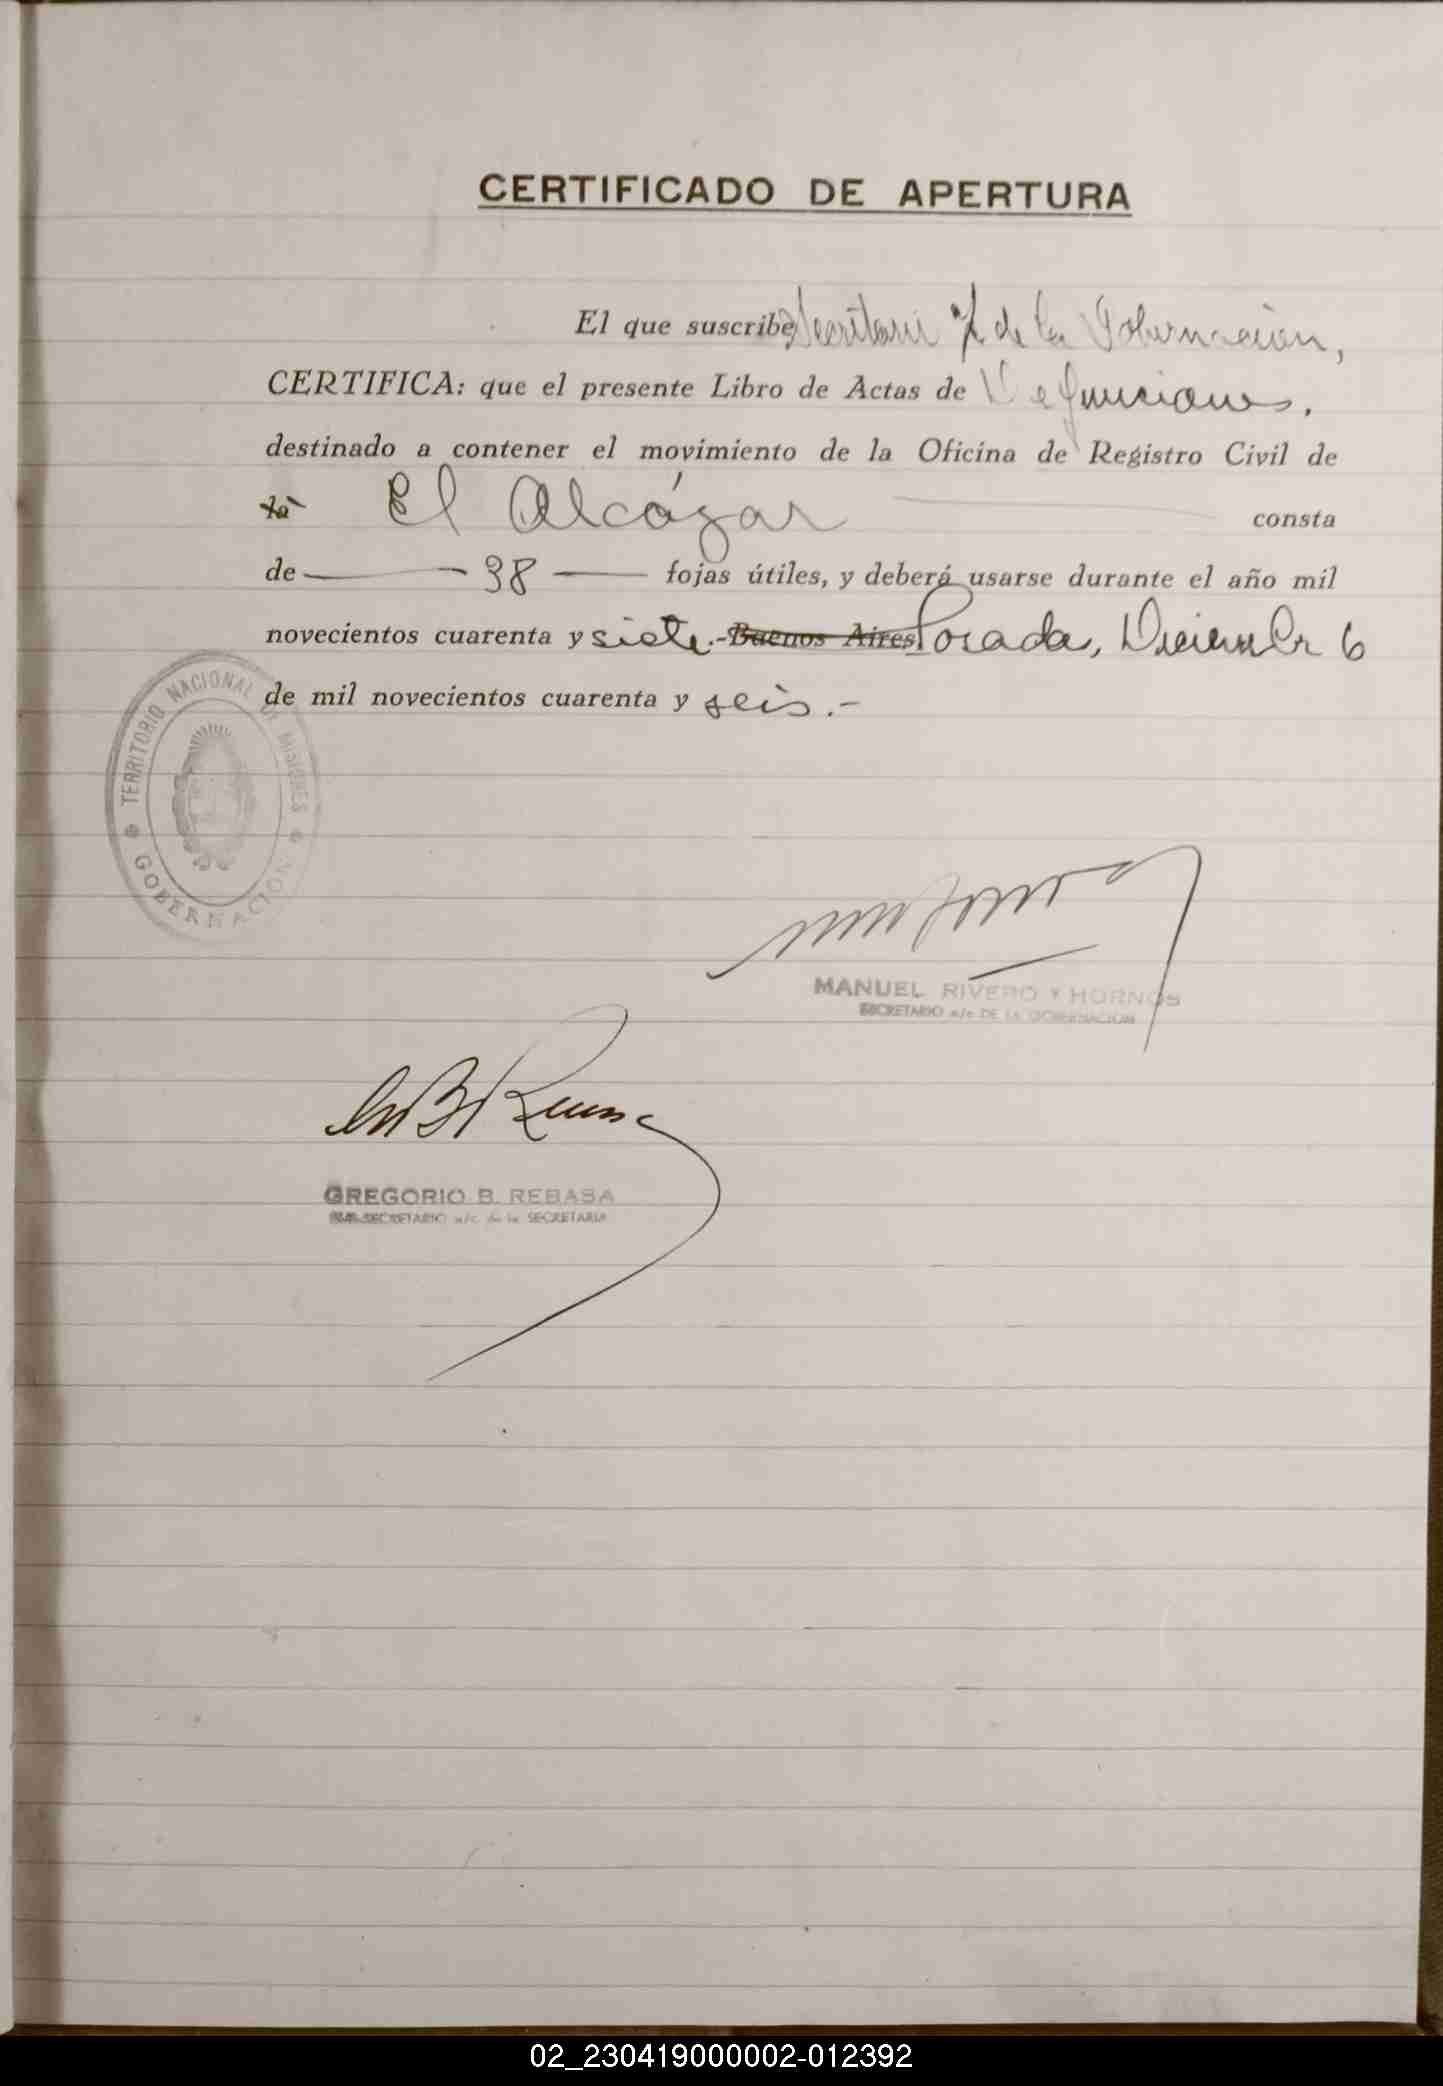 CERTIFICADO DE APERTURA
El que suscribe Secretario a/c de la Gobernación,
CERTIFICA: que el presente Libro de Actas de Defunciones,
destinado a contener el movimiento de la Oficina de Registro Civil de
la El Alcázar consta
de — 38 — fojas útiles, y deberá usarse durante el año mil
novecientos cuarenta y siete.- Buenos Aires, Posadas, Diciembre 6
de mil novecientos cuarenta y seis.-
TERRITORIO NACIONAL DE MISIONES
GOBERNACION
MANUEL RIVERO Y HORNOS
SECRETARIO a/c DE LA GOBERNACION
GREGORIO B. REBASA
SECRETARIO a/c de la SECRETARIA
02_230419000002-012392